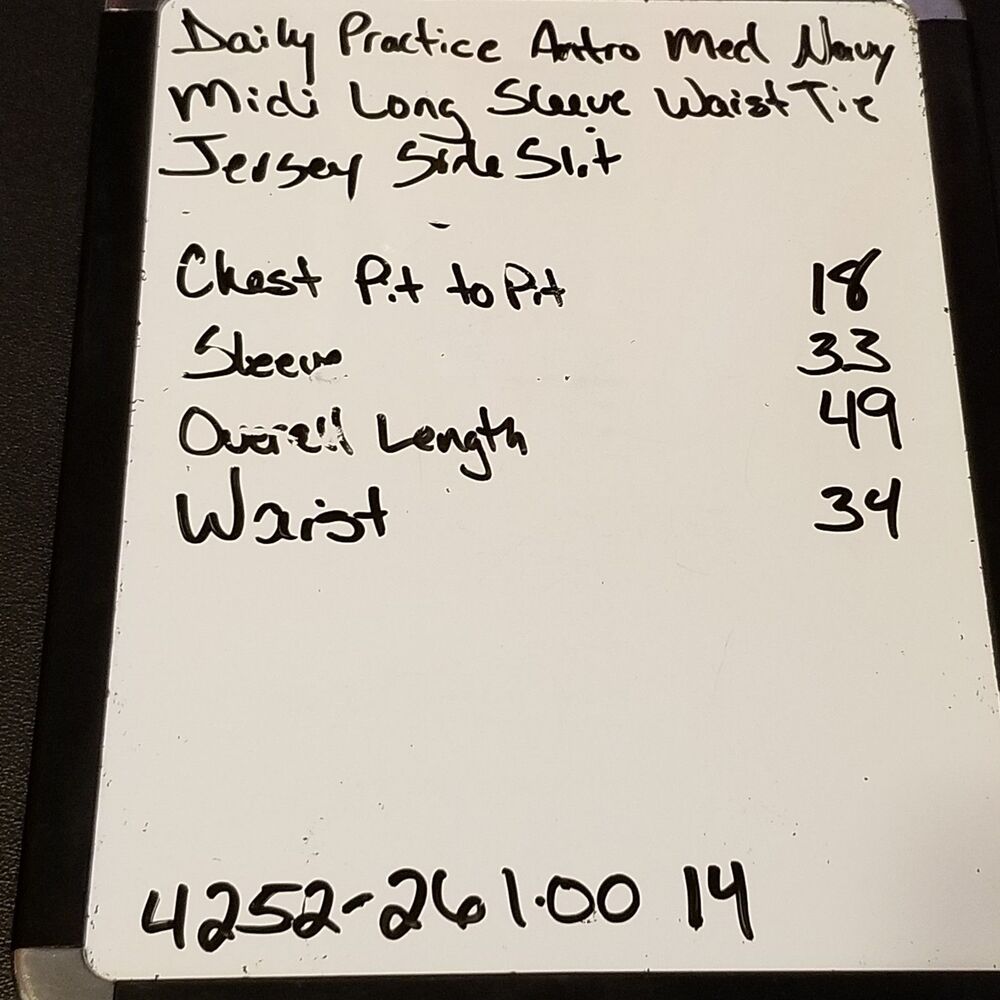 Daily Practice Antro Med Navy
Midi Long Sleeve Waist Tie
Jersey Side Slit
Chest Pit to Pit 18
Sleeve 33
Overall Length 49
Waist 34
4252-261.00 14